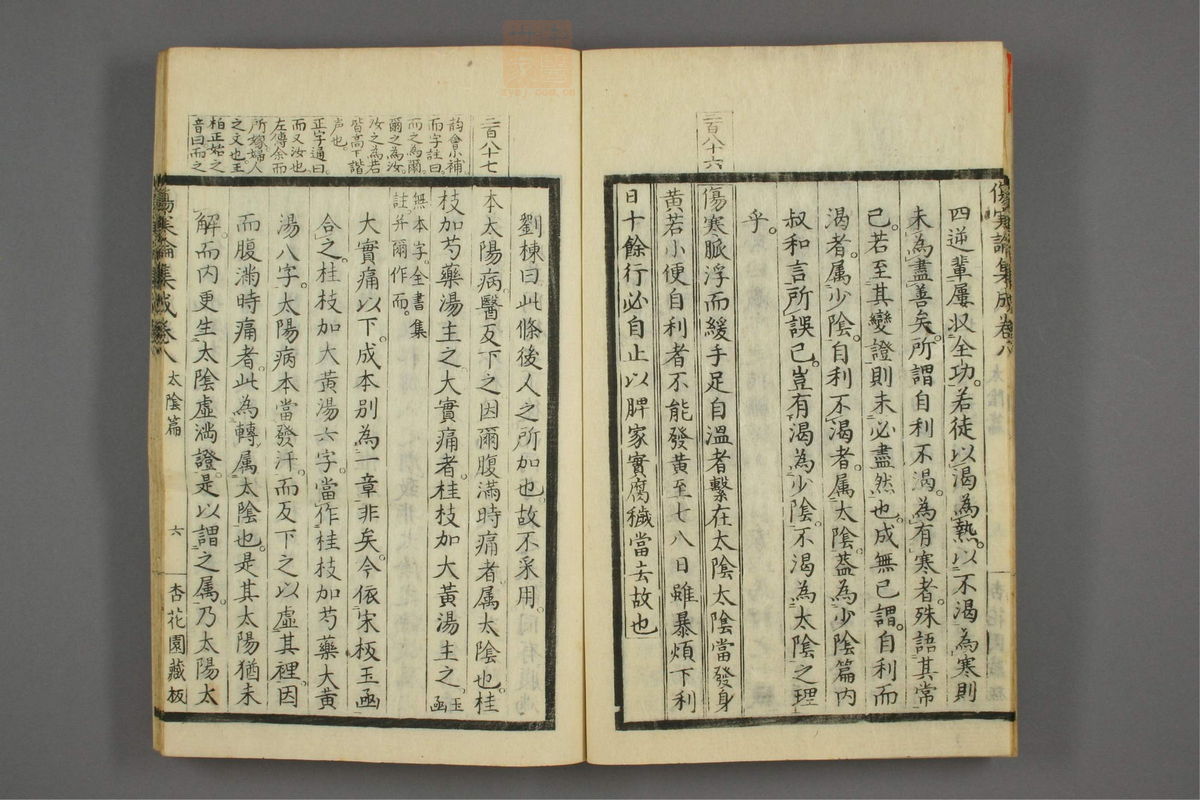 傷寒論集成卷八
二百八十六
四逆輩屢収全功。若徒以渴為熱。以不渴為寒則
未為盡善矣。所謂自利不渴。為有寒者。殊語其常
已。若至其變證則未必盡然也。成無己謂。自利而
渴者。属少陰。自利不渴者。属太陰。葢為少陰篇内
叔和言所誤已。豈有渴為少陰。不渴為太陰之理
乎。
傷寒脈浮而緩手足自溫者繫在太陰太陰當發身
黃若小便自利者不能發黃至七八日雖暴煩下利
日十餘行必自止以脾家實腐穢當去故也
二百八十七
韵會小補
而字註曰。
而之為爾。
爾之為汝。
汝之為若
皆高下諧
声也。
正字通曰。
而又汝也
左傳余而
所嫁婦人
之文也。王
柏正始之
音曰而之
劉棟曰此條後人之所加也。故不采用。
本太陽病。醫反下之因爾腹滿時痛者。属太陰也。桂
枝加芍藥湯主之。大實痛者。桂枝加大黃湯主之。玉函
無本字。全書集
註。并爾作而。
大實痛以下。成本別為一章非矣。今依宋板玉函
合之。桂枝加大黃湯六字。當作桂枝加芍藥大黃
湯八字。太陽病本當發汗。而反下之以虛其裡。因
而腹滿時痛者。此為轉属太陰也。是其太陽猶未
解。而内更生太陰虛滿證。是以謂之属。乃太陽太
傷寒論集成卷八 太陰篇 六 杏花園藏板